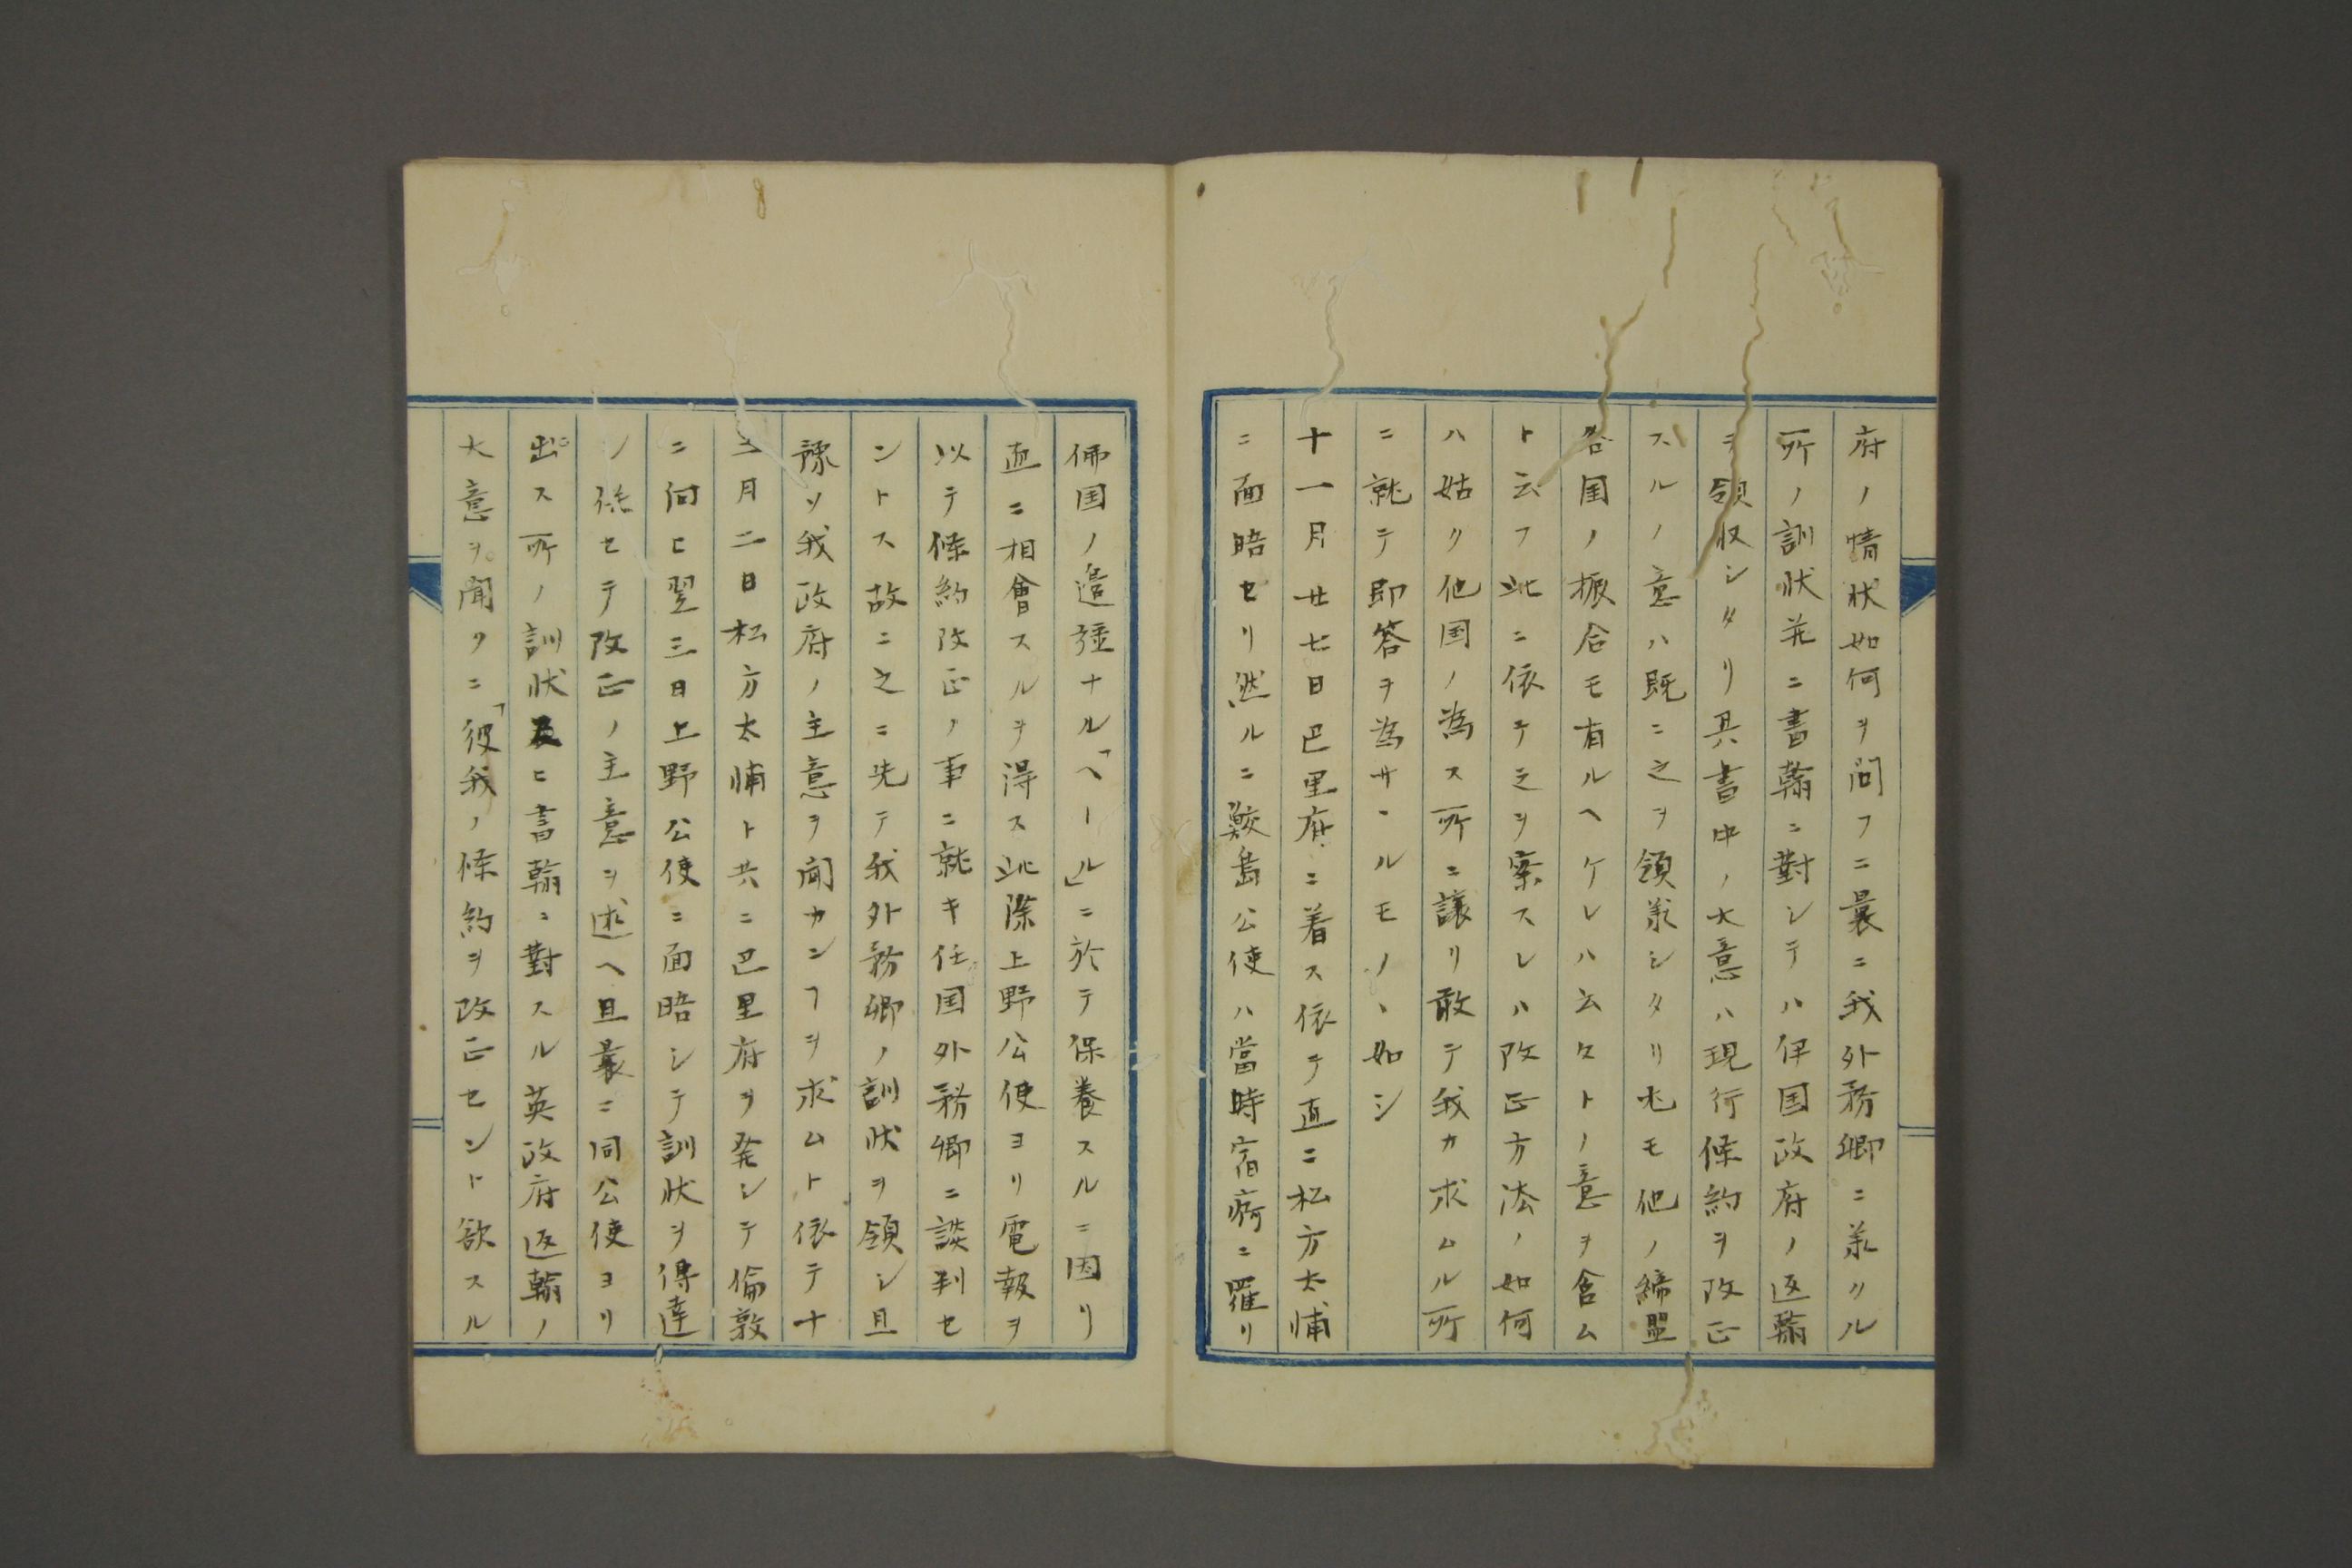 府ノ情状如何ヲ問フニ曩ニ我外務卿ニ羕クル
所ノ訓状并ニ書翰ニ對シテハ伊国政府ノ返翰
ヲ領収シタリ其書中ノ大意ハ現行條約ヲ改正
スルノ意ハ既ニ之ヲ領羕シタリ尤モ他ノ締盟
各国ノ振合モ有ルヘケレハ云々トノ意ヲ含ム
ト云フ此ニ依テ之ヲ案スレハ改正方法ノ如何
ハ姑ク他国ノ為ス所ニ譲リ敢テ我カ求ムル所
ニ就テ即答ヲ為サヽルモノヽ如シ
十一月廿七日巴里府ニ着ス依テ直ニ松方太輔
ニ面晤セリ然ルニ鮫島公使ハ當時宿痾ニ罹リ
佛国ノ邉疆ナル「ヘール」ニ於テ保養スルニ因リ
直ニ相會スルヲ得ス此際上野公使ヨリ電報ヲ
以テ條約改正ノ事ニ就キ任国外務卿ニ談判セ
ントス故ニ之ニ先テ我外務卿ノ訓状ヲ領シ且
豫ソ我政府ノ主意ヲ聞カンヿヲ求ムト依テ十
二月二日松方太輔ト共ニ巴里府ヲ発シテ倫敦
ニ向ヒ翌三日上野公使ニ面晤シテ訓状ヲ傳達
シ併セテ改正ノ主意ヲ述ヘ且曩ニ同公使ヨリ
出ス所ノ訓状及ヒ書翰ニ對スル英政府返翰ノ
大意ヲ聞クニ「彼我ノ條約ヲ改正セント欲スル